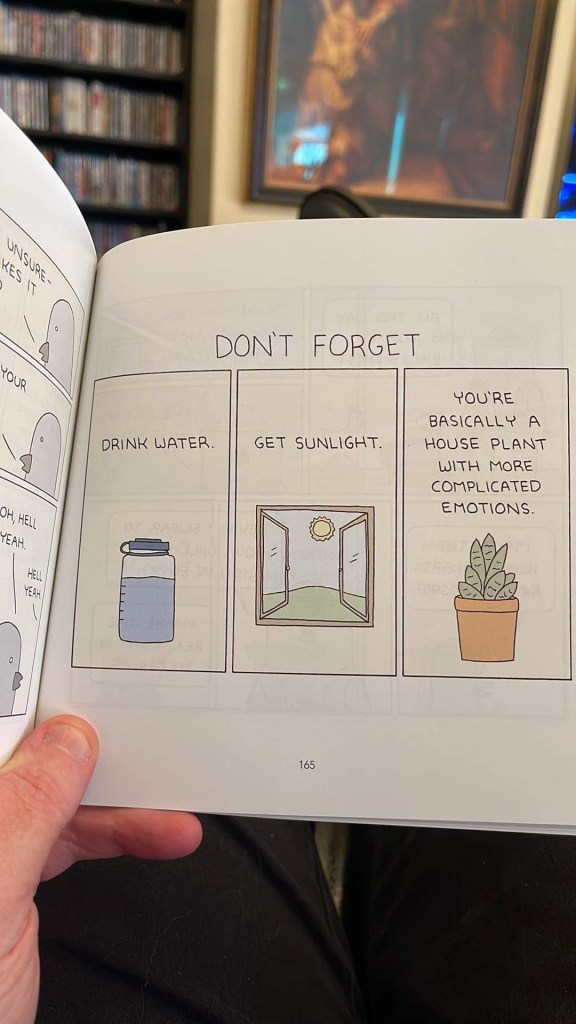 UNSURE-
IT
YOUR
OH, HELL
YEAH.
HELL
YEAH
DON'T FORGET
DRINK WATER.
GET SUNLIGHT.
YOU'RE
BASICALLY A
HOUSE PLANT
WITH MORE
COMPLICATED
EMOTIONS.
165